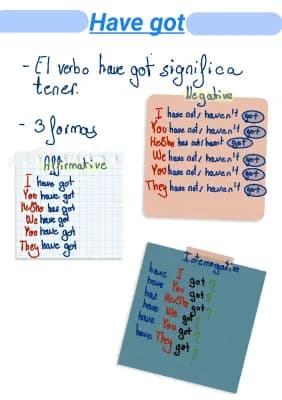 Have got
- El verbo have got significa
tener.
- 3 formas
Affirmative
I have got
You have got
He/She has got
We have got
You have got
They have got
Negative
I have not / haven't got
You have not / haven't got
He/She has not / hasnt got
We have not / haven't got
You have not / haven't got
They have not / haven't got
Interrogative
have I got?
have You got?
has He/She got?
have We got?
have You got?
have They got?